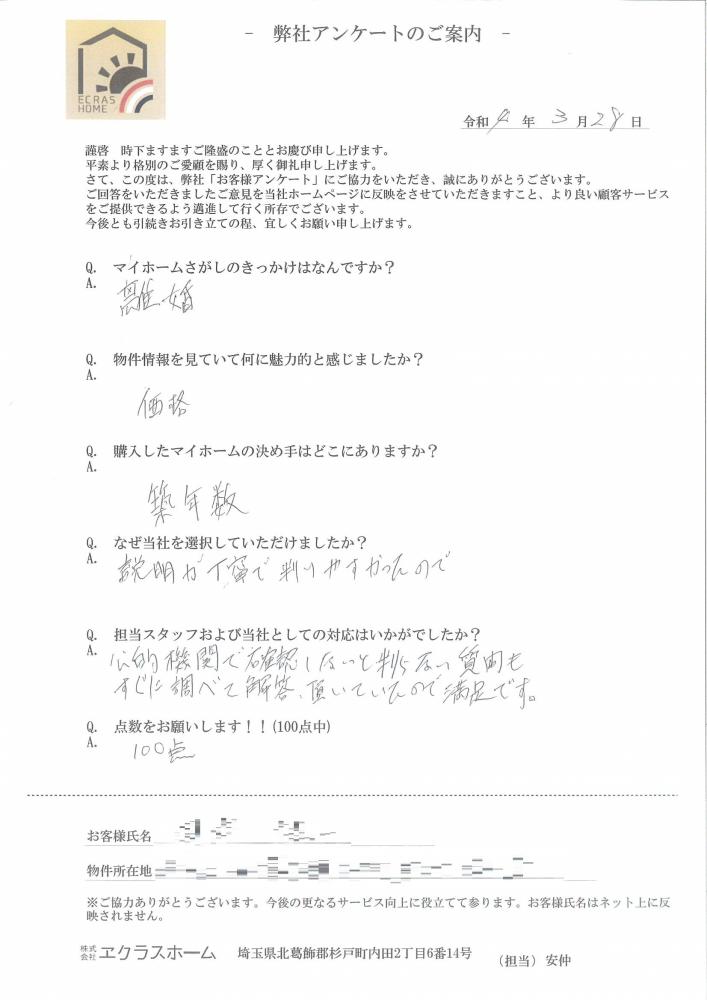 - 弊社アンケートのご案内 -
ECRAS
HOME
令和 4 年 3 月 28 日
謹啓 時下ますますご隆盛のこととお慶び申し上げます。
平素より格別のご愛顧を賜り、厚く御礼申し上げます。
さて、この度は、弊社「お客様アンケート」にご協力をいただき、誠にありがとうございます。
ご回答をいただきましたご意見を当社ホームページに反映をさせていただきますこと、より良い顧客サービス
をご提供できるよう邁進して行く所存でございます。
今後とも引続きお引き立ての程、宜しくお願い申し上げます。
Q. マイホームさがしのきっかけはなんですか？
A. 離婚
Q. 物件情報を見ていて何に魅力的と感じましたか？
A. 価格
Q. 購入したマイホームの決め手はどこにありますか？
A. 築年数
Q. なぜ当社を選択していただけましたか？
A. 説明が丁寧で判りやすかったので
Q. 担当スタッフおよび当社としての対応はいかがでしたか？
A. 公的機関で確認しないと判らない質問も
すぐに調べて解答、頂いていたので満足です。
Q. 点数をお願いします！！(100点中)
A. 100点
お客様氏名
物件所在地
※ご協力ありがとうございます。今後の更なるサービス向上に役立てて参ります。お客様氏名はネット上に反
映されません。
株式会社 ヱクラスホーム 埼玉県北葛飾郡杉戸町内田2丁目6番14号 （担当）安仲